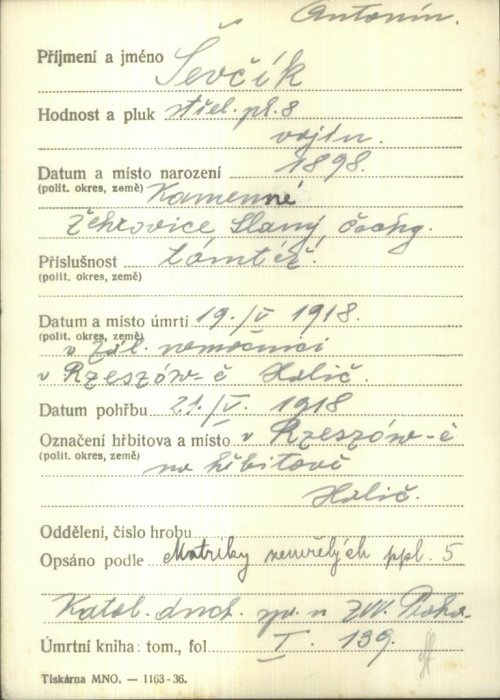 Antonín.
Příjmení a jméno Ševčík
Hodnost a pluk střel. pl. 8
vojín.
Datum a místo narození 1898.
(polit. okres, země) Kamenné
Žehrovice Slaný, Čechy.
Příslušnost tamtéž.
(polit. okres, země)
Datum a místo úmrtí 19./V 1918.
(polit. okres, země)
v zál. nemocnici
v Rzeszów-ě Halič.
Datum pohřbu 21./V. 1918
Označení hřbitova a místo v Rzeszów-ě
(polit. okres, země) na hřbitově
Halič.
Oddělení, číslo hrobu
Opsáno podle Matriky zemřelých ppl. 5
Katol. duch. spr. u ZVV. Praha.
Úmrtní kniha: tom., fol. I. 139.
Tiskárna MNO. — 1163-36.